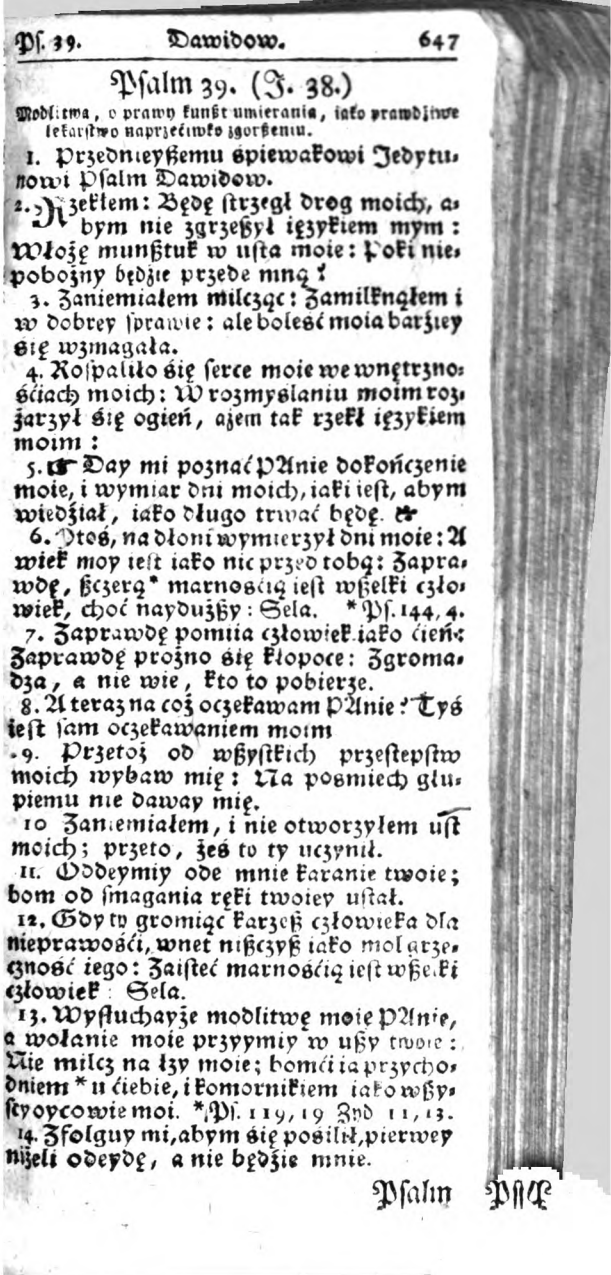 Ps. 39. Dawidow. 647
Psalm 39. (J. 38.)
Modlitwa, o prawy kunßt umierania, iako prawdźiwe
lekarstwo naprzećiwko zgorßeniu.
1. Przednieyßemu śpiewakowi Jedytu-
nowi Psalm Dawidow.
2. Rzekłem: Będę strzegł drog moich, a-
bym nie zgrzeßył ięzykiem mym:
Włożę munßtuk w usta moie: Poki nie-
pobożny będźie przede mną!
3. Zaniemiałem milcząc: Zamilknąłem i
w dobrey sprawie: ale boleść moia barźiey
się wzmagała.
4. Rospaliło się serce moie we wnętrzno-
śćiach moich: W rozmyślaniu moim roz-
żarzył się ogień, ażem tak rzekł ięzykiem
moim:
5. ☞ Day mi poznać PAnie dokończenie
moie, i wymiar dni moich, iaki iest, abym
wiedźiał, iako długo trwać będę. ☜
6. Otoś, na dłoni wymierzył dni moie: A
wiek moy iest iako nic przed tobą: Zapra-
wdę, ßczerą* marnośćią iest wßelki czło-
wiek, choć naydużßy: Sela. *Ps. 144, 4.
7. Zaprawdę pomiia człowiek iako ćień:
Zaprawdę prożno się kłopoce: Zgroma-
dza, a nie wie, kto to pobierze.
8. A teraz na coż oczekawam PAnie? Tyś
iest sam oczekawaniem moim
9. Przetoż od wßystkich przestępstw
moich wybaw mię: Na pośmiech głu-
piemu nie daway mię.
10 Zaniemiałem, i nie otworzyłem ust
moich; przeto, żeś to ty uczynił.
11. Oddeymiy ode mnie karanie twoie;
bom od smagania ręki twoiey ustał.
12. Gdy ty gromiąc karzeß człowieka dla
nieprawośći, wnet nißczyß iako mol grze-
czność iego: Zaisteć marnośćią iest wßelki
człowiek: Sela.
13. Wysłuchayże modlitwę moię PAnie,
a wołanie moie przyymiy w ußy twoie:
Nie milcz na łzy moie; bomći ia przycho-
dniem* u ćiebie, i komornikiem iako wßy-
scy oycowie moi. *Ps. 119, 19 Żyd 11, 13.
14. Zfolguy mi, abym się pośilił, pierwey
niżeli odeydę, a nie będźie mnie.
Psalm